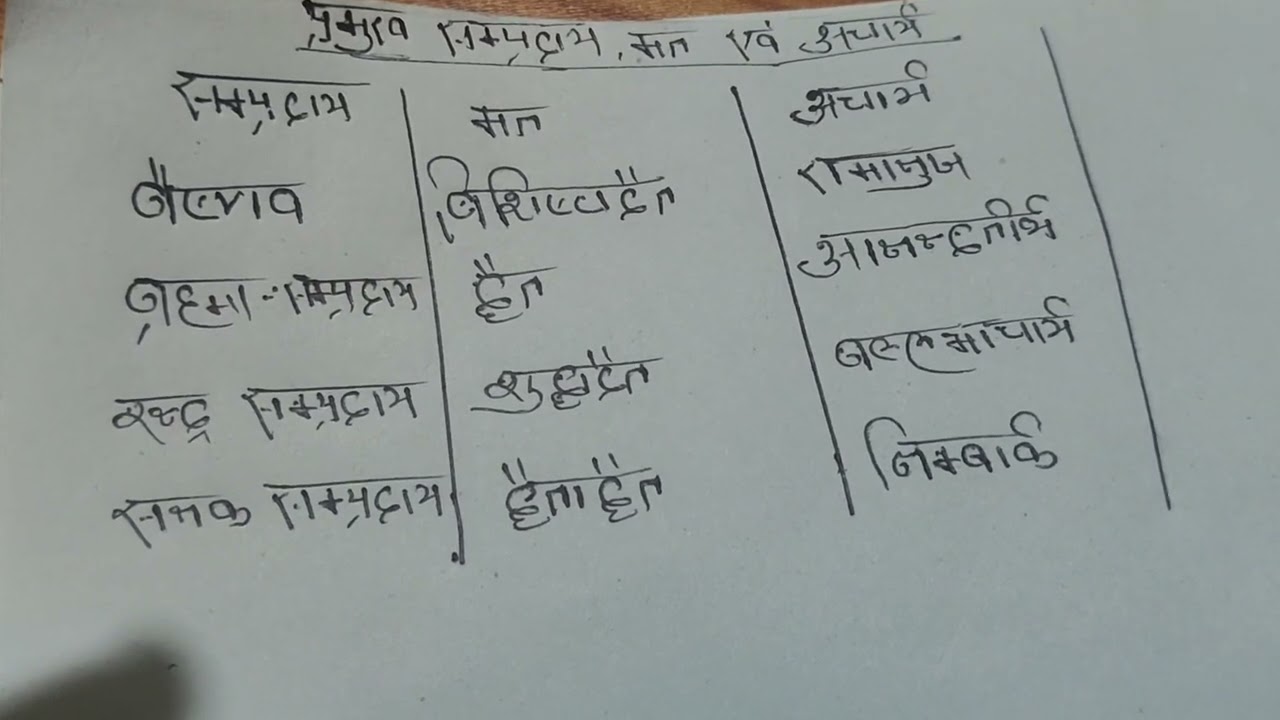 प्रमुख सम्प्रदाय, मत एवं अचार्य
सम्प्रदाय मत अचार्य
वैष्णव विशिष्टद्वैत रामानुज
ब्रह्मा-सम्प्रदाय द्वैत आनन्दतीर्थ
रुद्र सम्प्रदाय शुद्धाद्वैत वल्लभाचार्य
सनक सम्प्रदाय द्वैताद्वैत निम्बार्क